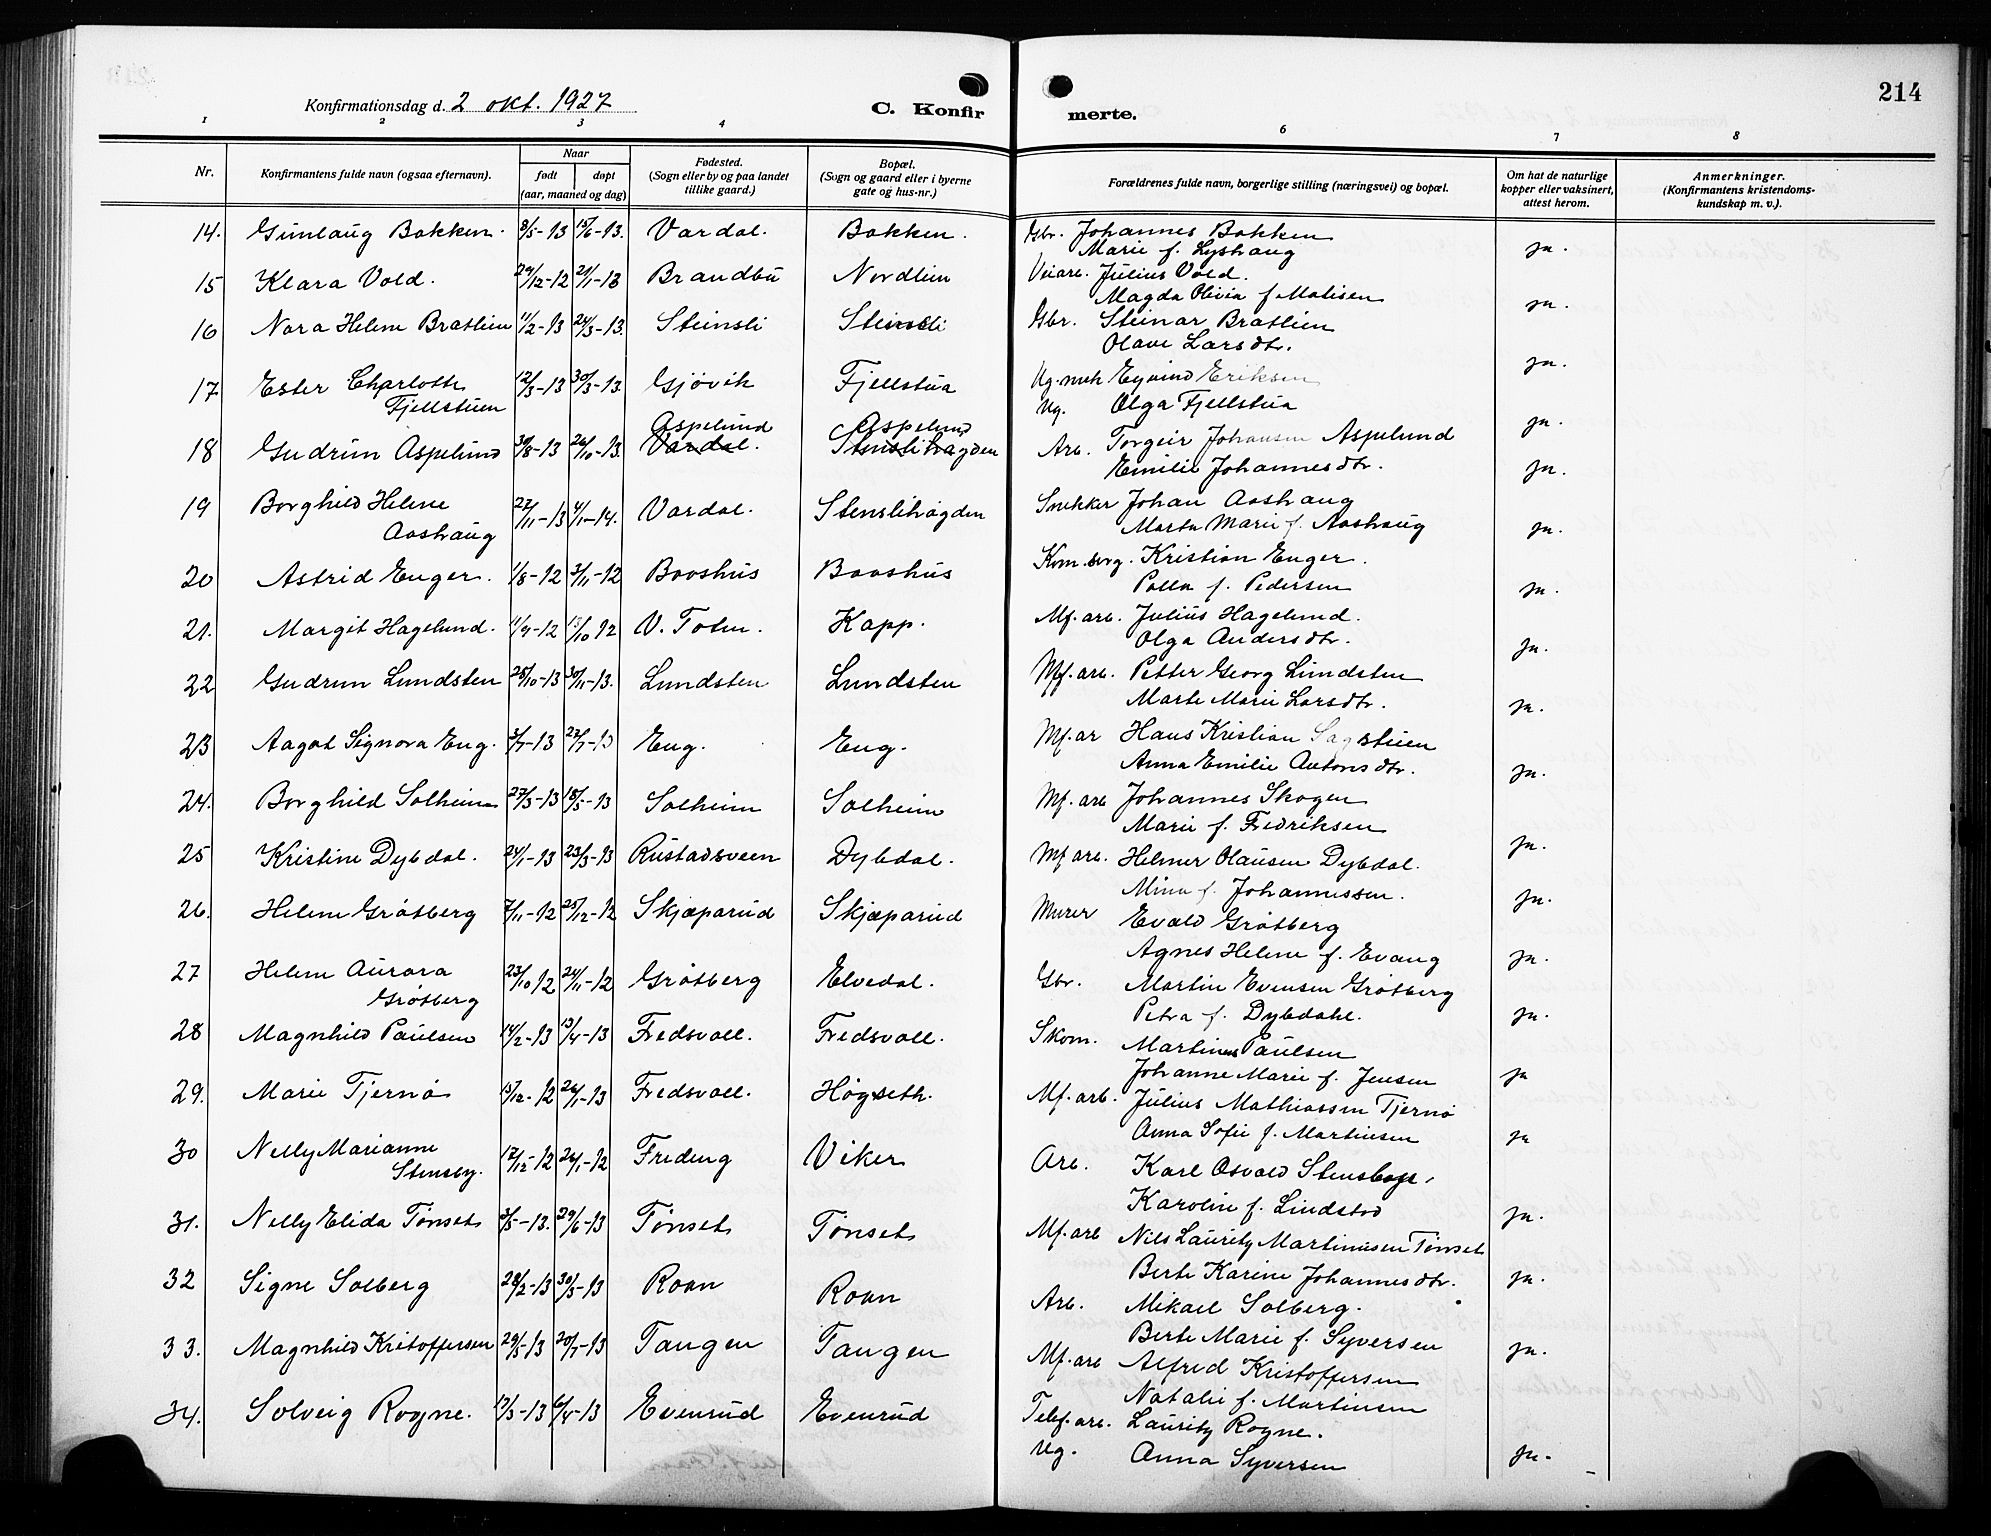 214
Konfirmationsdag d. 2 okt. 1927
C. Konfirmerte.
1 2 3 4 5 6 7 8
Nr. Konfirmantens fulde navn (ogsaa efternavn). Naar født døpt (aar, maaned og dag) Fødested. (Sogn eller by og paa landet tillike gaard.) Bopæl. (Sogn og gaard eller i byerne gate og hus-nr.) Forældrenes fulde navn, borgerlige stilling (næringsvei) og bopæl. Om hat de naturlige kopper eller vaksinert, attest herom. Anmerkninger. (Konfirmantens kristendomskundskap m. v.).
14. Gunlaug Bakken. 3/5-13 15/6-13. Vardal. Bakken. Gbr. Johannes Bakken
Marie f. Lyshaug ja.
15 Klara Vold. 29/12-12 21/1-13 Brandbu Nordlien Veiarb. Julius Vold.
Magda Olivia f Matisen ja.
16 Nora Helene Bratlien 11/2-13 24/3-13. Steinsli Steinsli Gbr. Steinar Bratlien
Olave Larsdtr. ja.
17 Ester Charlotte
Fjellstuen 12/3-13 30/3-13. Gjøvik Fjellstua Ug. mek Eyvind Eriksen
Ug. Olga Fjellstua ja.
Aspelund Aspelund
18 Gudrun Aspelund 30/8-13 26/10-13. Vardal. Stenslihagden Arb. Torgeir Johansen Aspelund
Emilie Johannesdtr. ja.
19 Borghild Helene
Aashaug 27/11-13 4/1-14. Vardal. Stenslihøgden Snekker Johan Aashaug
Marta Marie f. Aashaug ja.
20 Astrid Enger. 1/8-12 3/11-12 Baashus Baashus Kom. Kristian Enger.
Palla f. Pedersen ja.
21. Margit Hagelund. 11/9-12 13/10 12 V. Toten. Kapp. Mf. arb. Julius Hagelund.
Olga Andersdtr. ja.
22 Gudrun Lundsten 25/10-13 30/11-13. Lundsten Lundsten Mf. arb. Petter Georg Lundsten
Marte Marie Larsdtr. ja.
23 Aagot Signora Eng. 3/7-13 27/7-13 Eng. Eng. Mf. ar Hans Kristian Sagstuen
Anna Emilie Antonsdtr. ja.
24. Borghild Solheim 27/3-13 18/5-13 Solheim Solheim Mf. arb Johannes Skogen
Marie f. Fredriksen ja.
25 Kristine Dybdal. 24/1-13 23/3-13 Rustadsveen Dybdal. Mf arb. Helmer Olausen Dybdal.
Mina f. Johannessen. ja.
26. Helene Gråberg 7/11-12 25/12-12 Skjæparud Skjæparud Murer Evald Gråberg
Agnes Helene f. Evang ja.
27 Helene Aurora
Gråberg 23/10 12 24/11-12 Gråberg Elvedal. Gbr. Martin Evensen Gråberg
Petra f. Dybdahl. ja.
28 Magnhild Paulsen 14/2-13 13/4-13 Fredsvoll. Fredsvoll. Skom. Martinus Paulsen
Johanne Marie f. Jensen ja
29. Marie Tjernø 15/12-12 26/1-13 Fredsvoll. Høgseth. Mf. arb. Julius Mathiassen Tjernø
Anna Sofie f. Martinsen ja
30 Nelly Marianne
Stensby. 17/12-12 26/1-12 Fredeng Viker Arb. Karl Osvald Stensby
Karoline f. Lindstad ja.
31. Nelly Elida Tønset 3/5-13. 29/6-13 Tønset Tønset Mf. arb Nils Lauritz Martinusen Tønset
Berte Karine Johannesdtr. ja.
32 Signe Solberg 28/2-13 30/3-13 Roan Roan Arb. Mikael Solberg.
Berte Marie f. Syversen ja.
33. Magnhild Kristoffersen 29/5-13 20/7-13 Tangen Tangen Mf. arb Alfred Kristoffersen
Natalie f. Martinsen
34. Solveig Rogne. 17/3-13 6/4-13 Evenrud Evenrud Telef. arb. Lauritz Rogne.
Ug. Anna Syversen ja.